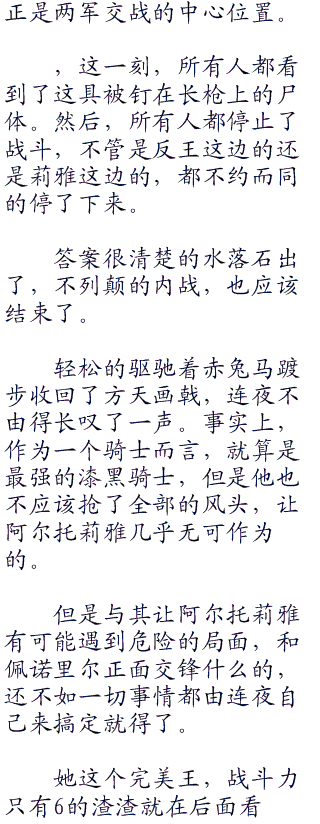 正是两军交战的中心位置。
，这一刻，所有人都看
到了这具被钉在长枪上的尸
体。然后，所有人都停止了
战斗，不管是反王这边的还
是莉雅这边的，都不约而同
的停了下来。
答案很清楚的水落石出
了，不列颠的内战，也应该
结束了。
轻松的驱驰着赤兔马踱
步收回了方天画戟，连夜不
由得长叹了一声。事实上，
作为一个骑士而言，就算是
最强的漆黑骑士，但是他也
不应该抢了全部的风头，让
阿尔托莉雅几乎无可作为
的。
但是与其让阿尔托莉雅
有可能遇到危险的局面，和
佩诺里尔正面交锋什么的，
还不如一切事情都由连夜自
己来搞定就得了。
她这个完美王，战斗力
只有6的渣渣就在后面看